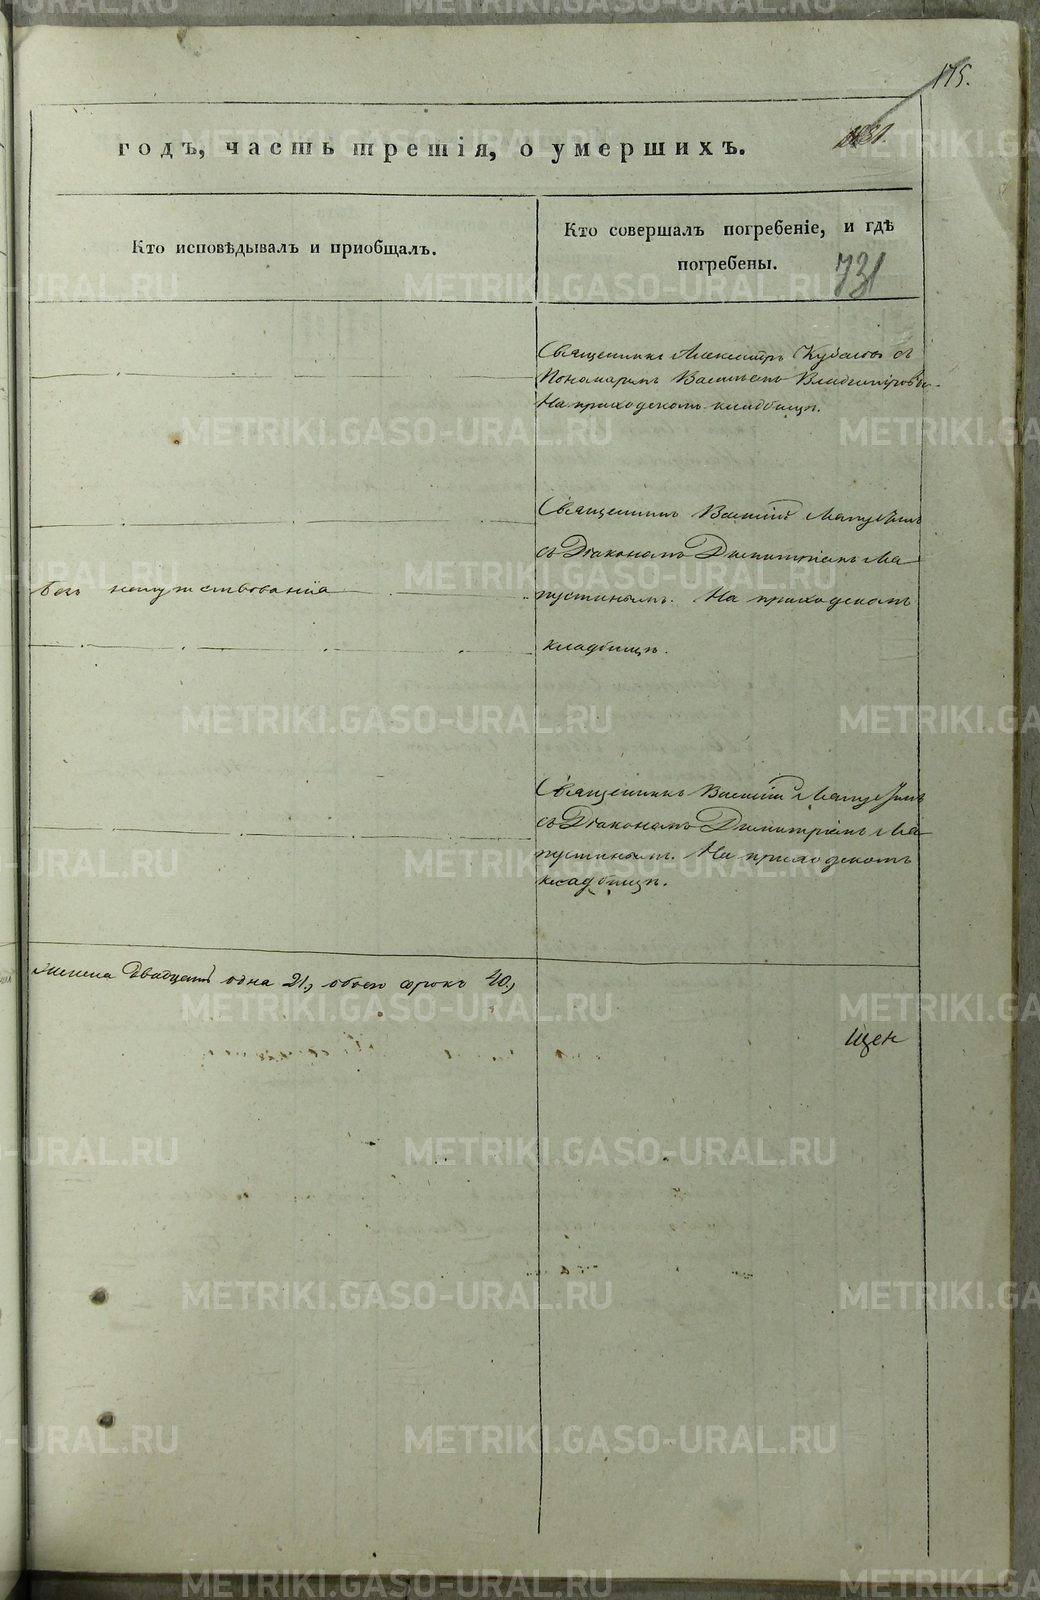 175.
годъ, часть третія, о умершихъ.
Кто исповѣдывалъ и приобщалъ.
Кто совершалъ погребеніе, и гдѣ
погребены.
731
Священникъ Александръ Кубасовъ съ
Пономаремъ Васильемъ
На приходскомъ кладбищѣ.
Священникъ Василій
съ Діакономъ Димитріемъ Ла-
пустинымъ. На приходскомъ
кладбищѣ.
безъ напутствованія
Священникъ Василій
съ Діакономъ Димитріемъ Ла-
пустинымъ. На приходскомъ
кладбищѣ.
двадцать одна 21., обоего сорокъ 40.,
METRIKI.GASO-URAL.RU